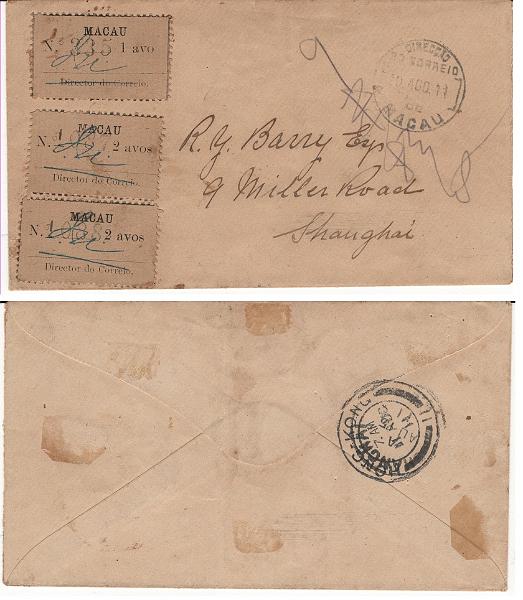 MACAU
N. 335 1 avo
Director do Correio.
MACAU
N. 2 avos
Director do Correio.
MACAU
N. 2 avos
Director do Correio.
DIRECÇÃO
DO CORREIO
AGO. 11
DE
MACAU
R. Y. Barry Esq
9 Miller Road
Shanghai
HONG-KONG
7 AM
AU
11
SHANGHAI